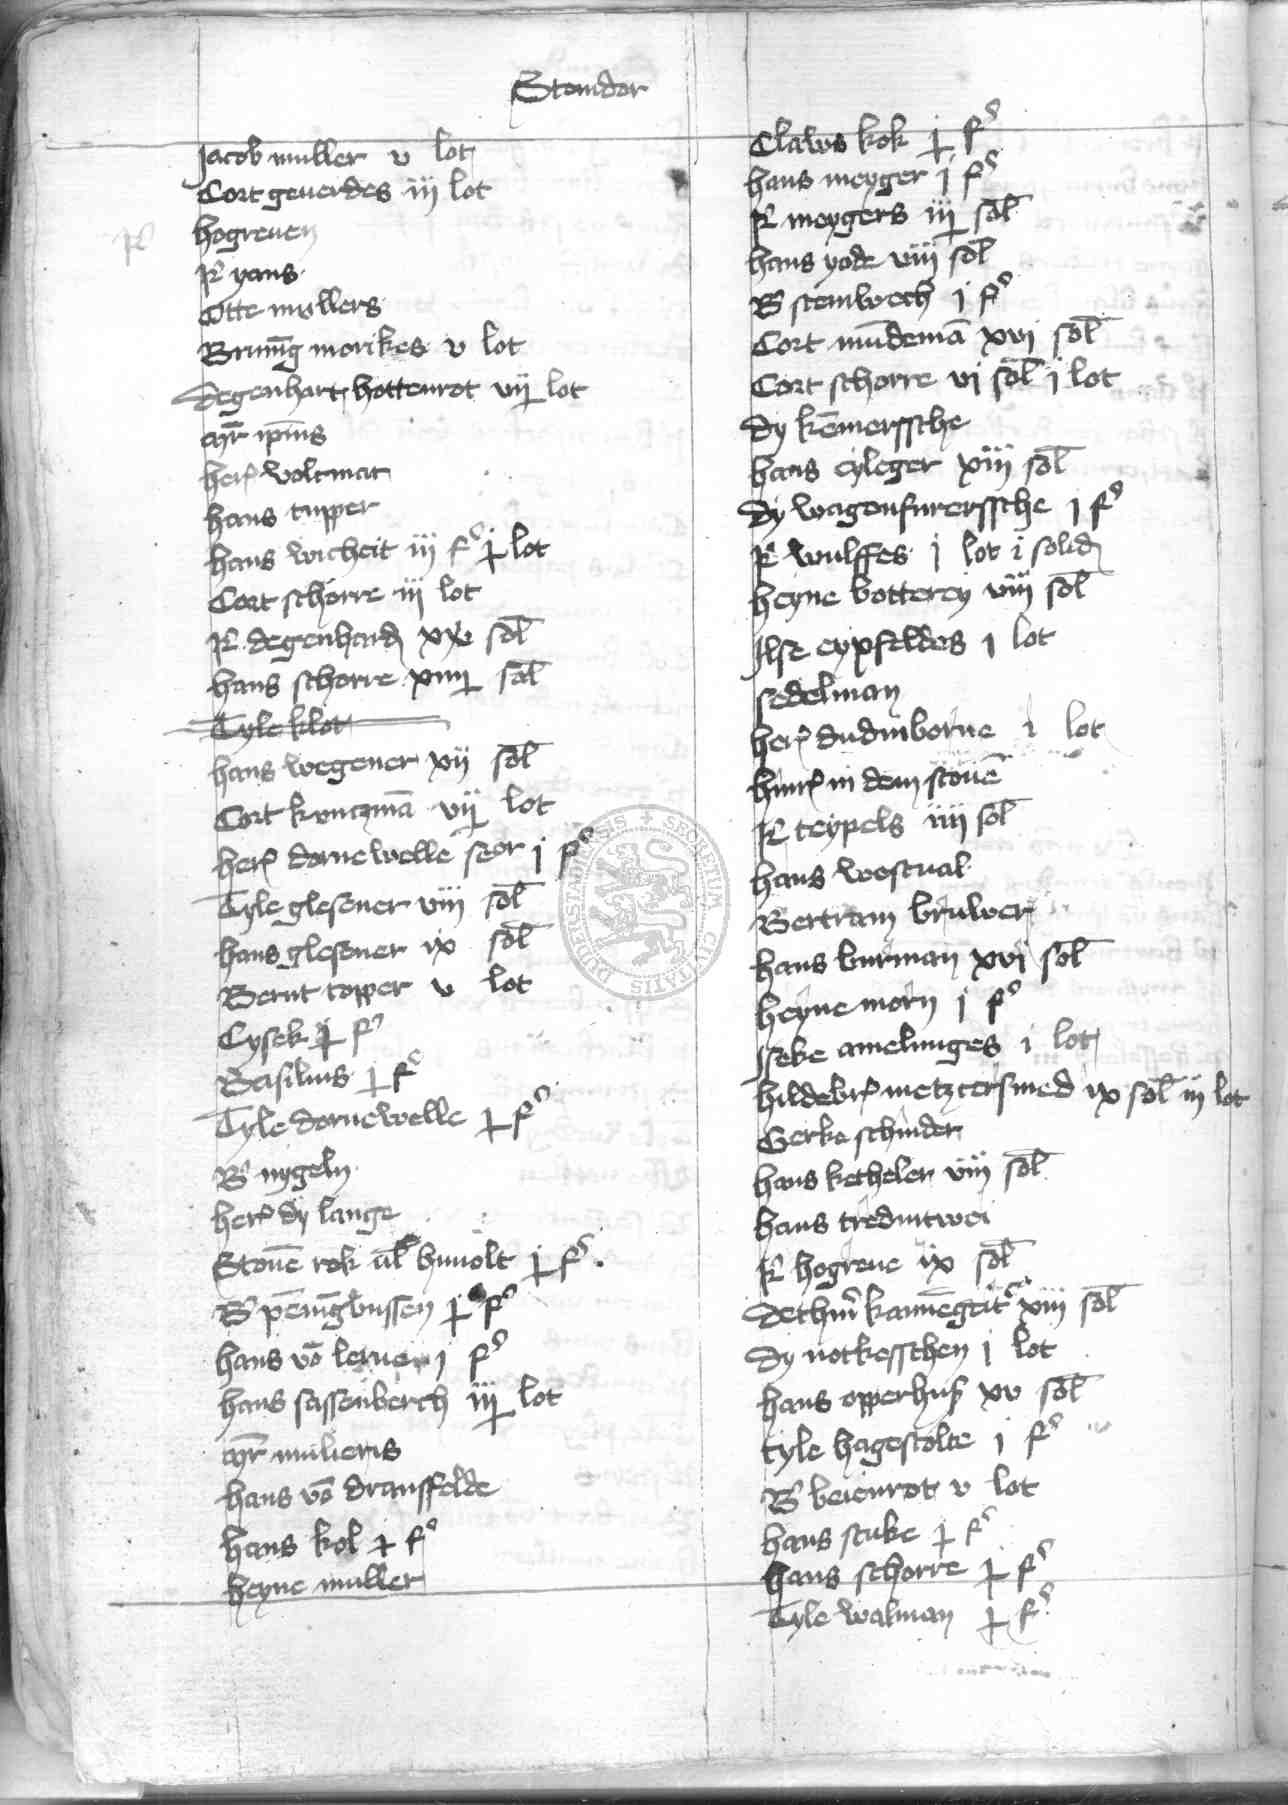 Stendor
Jacob muller v lot
Cort geuerdes iij lot
hogreuen
R
R yans
Otte mullers
Brunīg morikes v lot
degenhart hottenrot vij lot
her volcmar
hans tupper
hans wicheit iij f j lot
Cort schorre iij lot
R degenhard xv sol
hans schorre xiiij sol
Tyle klot
hans wegener xij sol
Cort kunczmā vij lot
her dornewelle seor j f
Tyle glesener viij sol
hans glesener ix sol
Bernt topper v lot
Cysek j f
Basilius j f
Tyle dornewelle j f
B nygeln
her dy lange
Stouē rok hunolt j f
B pēnīgbussen j f
hans vō lerne j f
hans sassenberch iij lot
mulieris
hans vō dransfelde
hans kol j f
heyne muller
Clawes kok j f
hans meyger j f
R meygers iij sol
hans yode viij sol
B stenwech j f
Cort mūdemā xvj sol
Cort schorre vj sol j lot
dy kēmerssche
hans eyleger xiij sol
dy wagenfurerssche j f
R wulffes j lot i solid
heyne botterey viij sol
Ilse eypfeldes i lot
sedelman
her dudinborne i lot
hinr in dem stouē
R teypels iiij sol
hans westual
Bertram bruwer
hans burman xvj sol
heyne morn j f
Ilsebe amelunges i lot
hildebr metzcersmed ix sol iij lot
Gerke schinder
hans ketheler viij sol
hans tredintwei
R hogreue ix sol
dethm kannēgit xiij sol
dy notkesschen j lot
hans opperhus xv sol
tyle hagestolte j f
B beienrot v lot
hans stuke j f
hans schorre j f
Tyle walman j f
SECRETUM CIVITATIS DUDERSTADENSIS